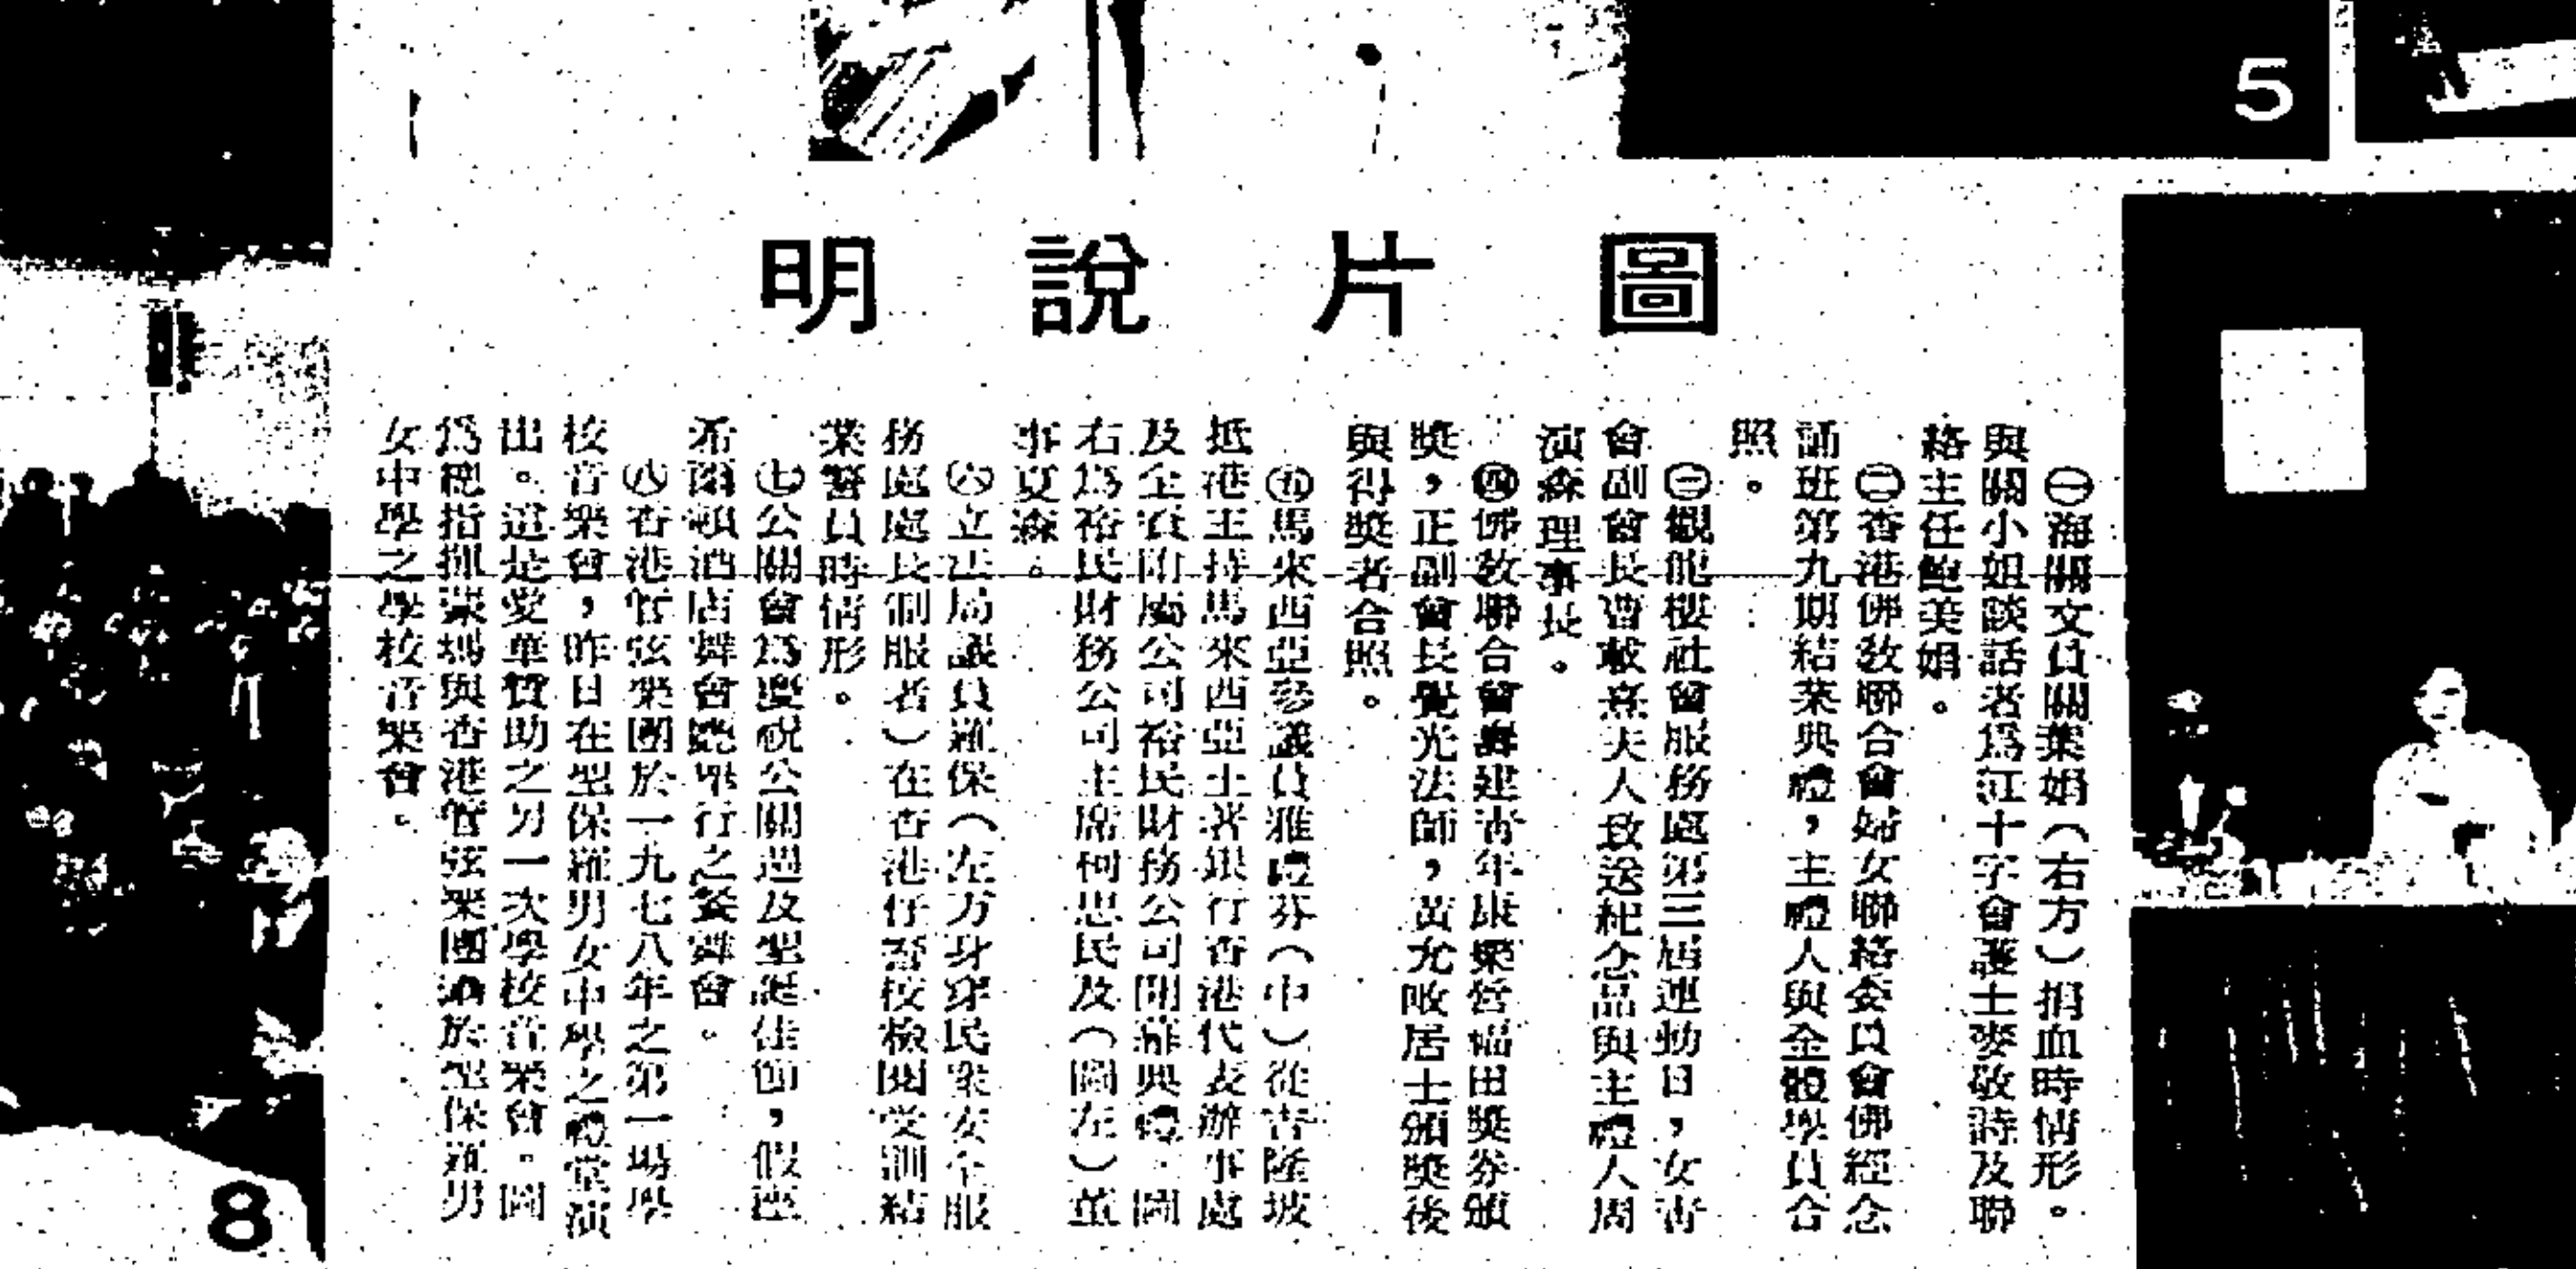 圖片說明
㊀海關文員關葉娟（右方）捐血時情形。
與關小姐談話者爲紅十字會護士麥敬時及聯
絡主任鮑美娟。
㊁香港佛敎聯合會婦女聯絡委員會佛經念
誦班第九期結業典禮，主禮人與全體學員合
照。
㊂觀龍樓社會服務處第三屆運動日，女靑
會副會長曹載熹夫人致送紀念品與主禮人周
演森理事長。
㊃佛敎聯合會籌建靑年康樂營福田獎券頒
獎，正副會長覺光法師，黃允畋居士頒獎後
與得獎者合照。
㊄馬來西亞參議員雅禮芬（中）從吉隆坡
抵港主持馬來西亞土著銀行香港代表辦事處
及全資附屬公司裕民財務公司開幕典禮．圖
右爲裕民財務公司主席柯思民及（圖左）董
事夏森。
㊅立法局議員羅保（左方身穿民衆安全服
務處處長制服者）在香港仔警校檢閱受訓結
業警員時情形。
㊆公關會爲慶祝公關週及聖誕佳節，假座
希爾頓酒店舞會 舉行之餐舞會。
㊇香港管弦樂團於一九七八年之第一場學
校音樂會，昨日在聖保羅男女中學之禮堂演
出。這是愛華贊助之另一次學校音樂會。圖
爲總指揮蒙瑪與香港管弦樂團演於聖保羅男
女中學之學校音樂會。
5
8